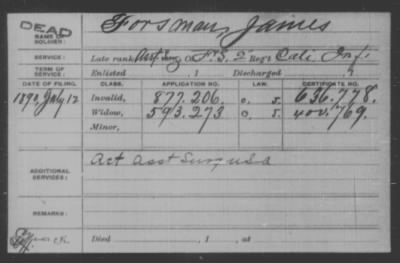 DEAD
NAME OF SOLDIER: Forsman, James
SERVICE: Late rank Asst Surg Co F.S. 2 Reg't Cali Inf.
TERM OF SERVICE: Enlisted , 1 Discharged , 1
DATE OF FILING. CLASS. APPLICATION NO. LAW. CERTIFICATE NO.
1890, July 12 Invalid, 877.206. 636.778.
Widow, 593.273 400.769.
Minor,
ADDITIONAL SERVICES: Act Asst Surg USA
REMARKS:
Died , 1 , at